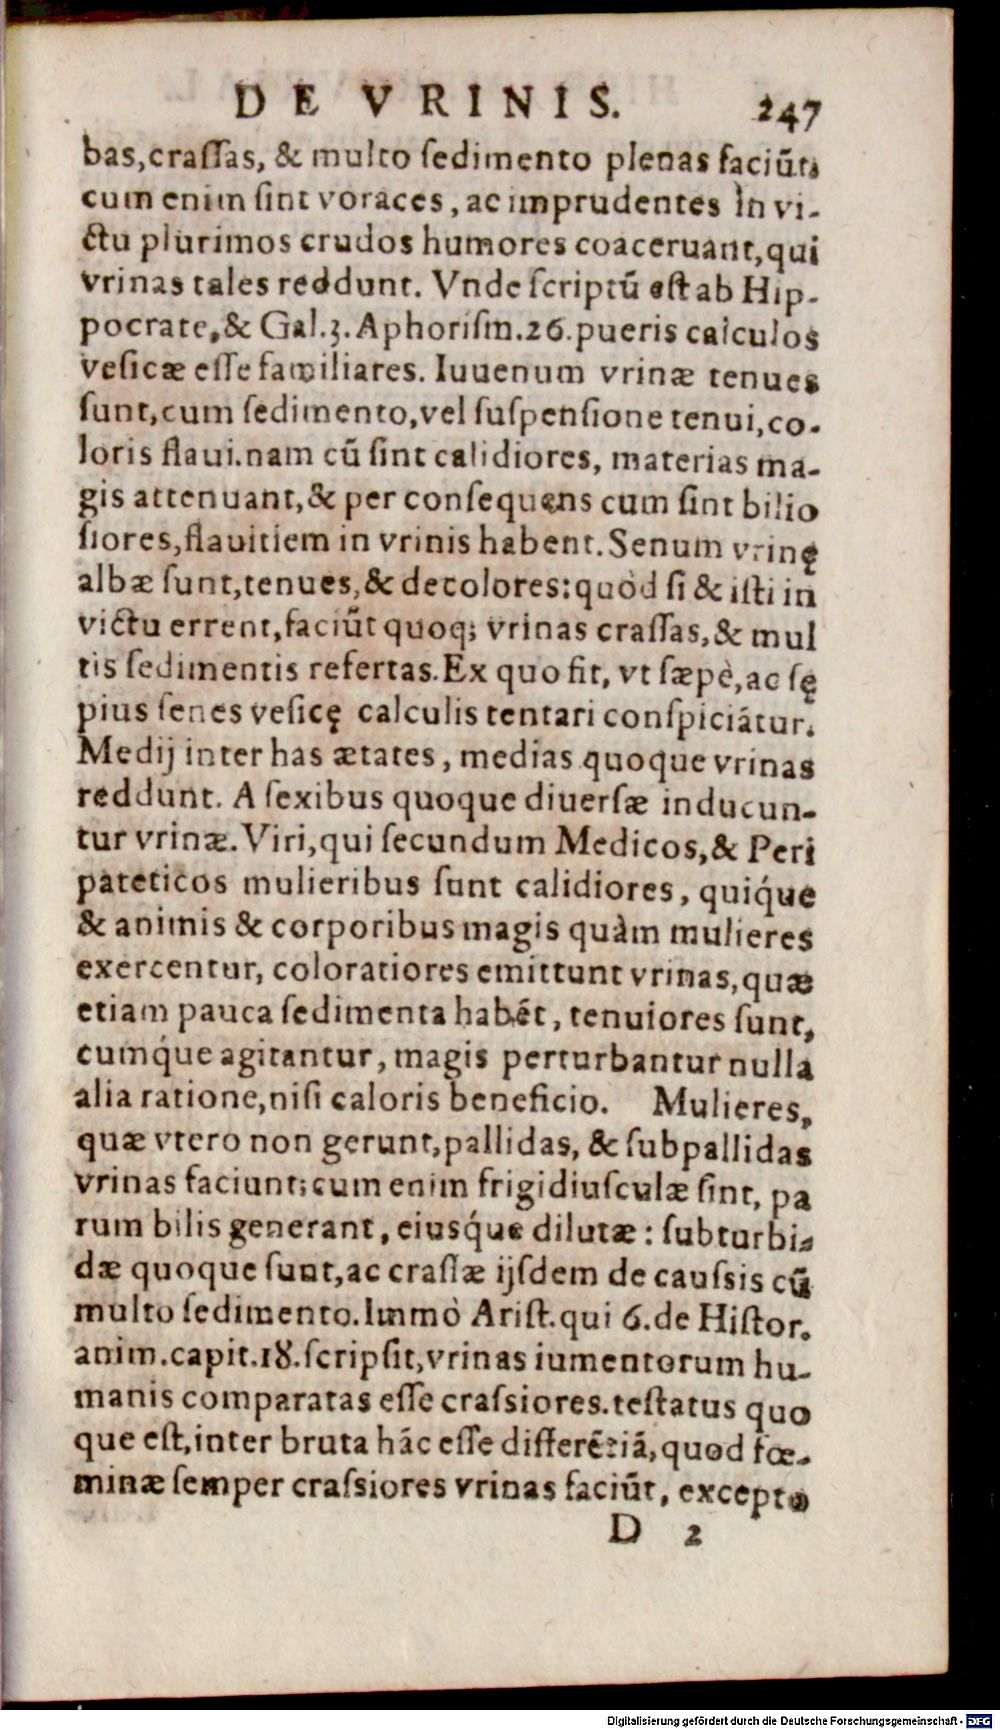 DE VRINIS. 247
bas,craſſas, & multo ſedimento plenas faciũt;
cum enim ſint voraces, ac imprudentes in vi-
ctu plurimos crudos humores coaceruant,qui
vrinas tales reddunt. Vnde ſcriptũ eſt ab Hip-
pocrate,& Gal.3.Aphoriſm.26.pueris calculos
veſicæ eſſe familiares. Iuuenum vrinæ tenues
ſunt,cum ſedimento,vel ſuſpenſione tenui,co-
loris flaui.nam cũ ſint calidiores, materias ma-
gis attenuant,& per conſequens cum ſint bilio
ſiores,flauitiem in vrinis habent.Senum vrinę
albæ ſunt,tenues,& decolores:quòd ſi & iſti in
victu errent,faciũt quoq; vrinas craſſas,& mul
tis ſedimentis refertas.Ex quo fit, vt ſæpè,ac ſę
pius ſenes veſicę calculis tentari conſpiciãtur.
Medij inter has ætates, medias quoque vrinas
reddunt. A ſexibus quoque diuerſæ inducun-
tur vrinæ.Viri,qui ſecundum Medicos,& Peri
pateticos mulieribus ſunt calidiores, quiq́ue
& animis & corporibus magis quàm mulieres
exercentur, coloratiores emittunt vrinas,quæ
etiam pauca ſedimenta habẽt, tenuiores ſunt,
cumq́ue agitantur, magis perturbantur nulla
alia ratione,niſi caloris beneficio. Mulieres,
quæ vtero non gerunt,pallidas, & ſubpallidas
vrinas faciunt;cum enim frigidiuſculæ ſint, pa
rum bilis generant, eiusq́ue dilutæ: ſubturbi-
dæ quoque ſunt,ac craſſæ ijſdem de cauſsis cũ
multo ſedimento.Immò Ariſt.qui 6.de Hiſtor.
anim.capit.18.ſcripſit,vrinas iumentorum hu-
manis comparatas eſſe craſsiores.teſtatus quo
que eſt,inter bruta hãc eſſe differẽtiã,quod fœ-
minæ ſemper craſsiores vrinas faciũt, excepto
D 2
Digitalisierung gefördert durch die Deutsche Forschungsgemeinschaft - DFG